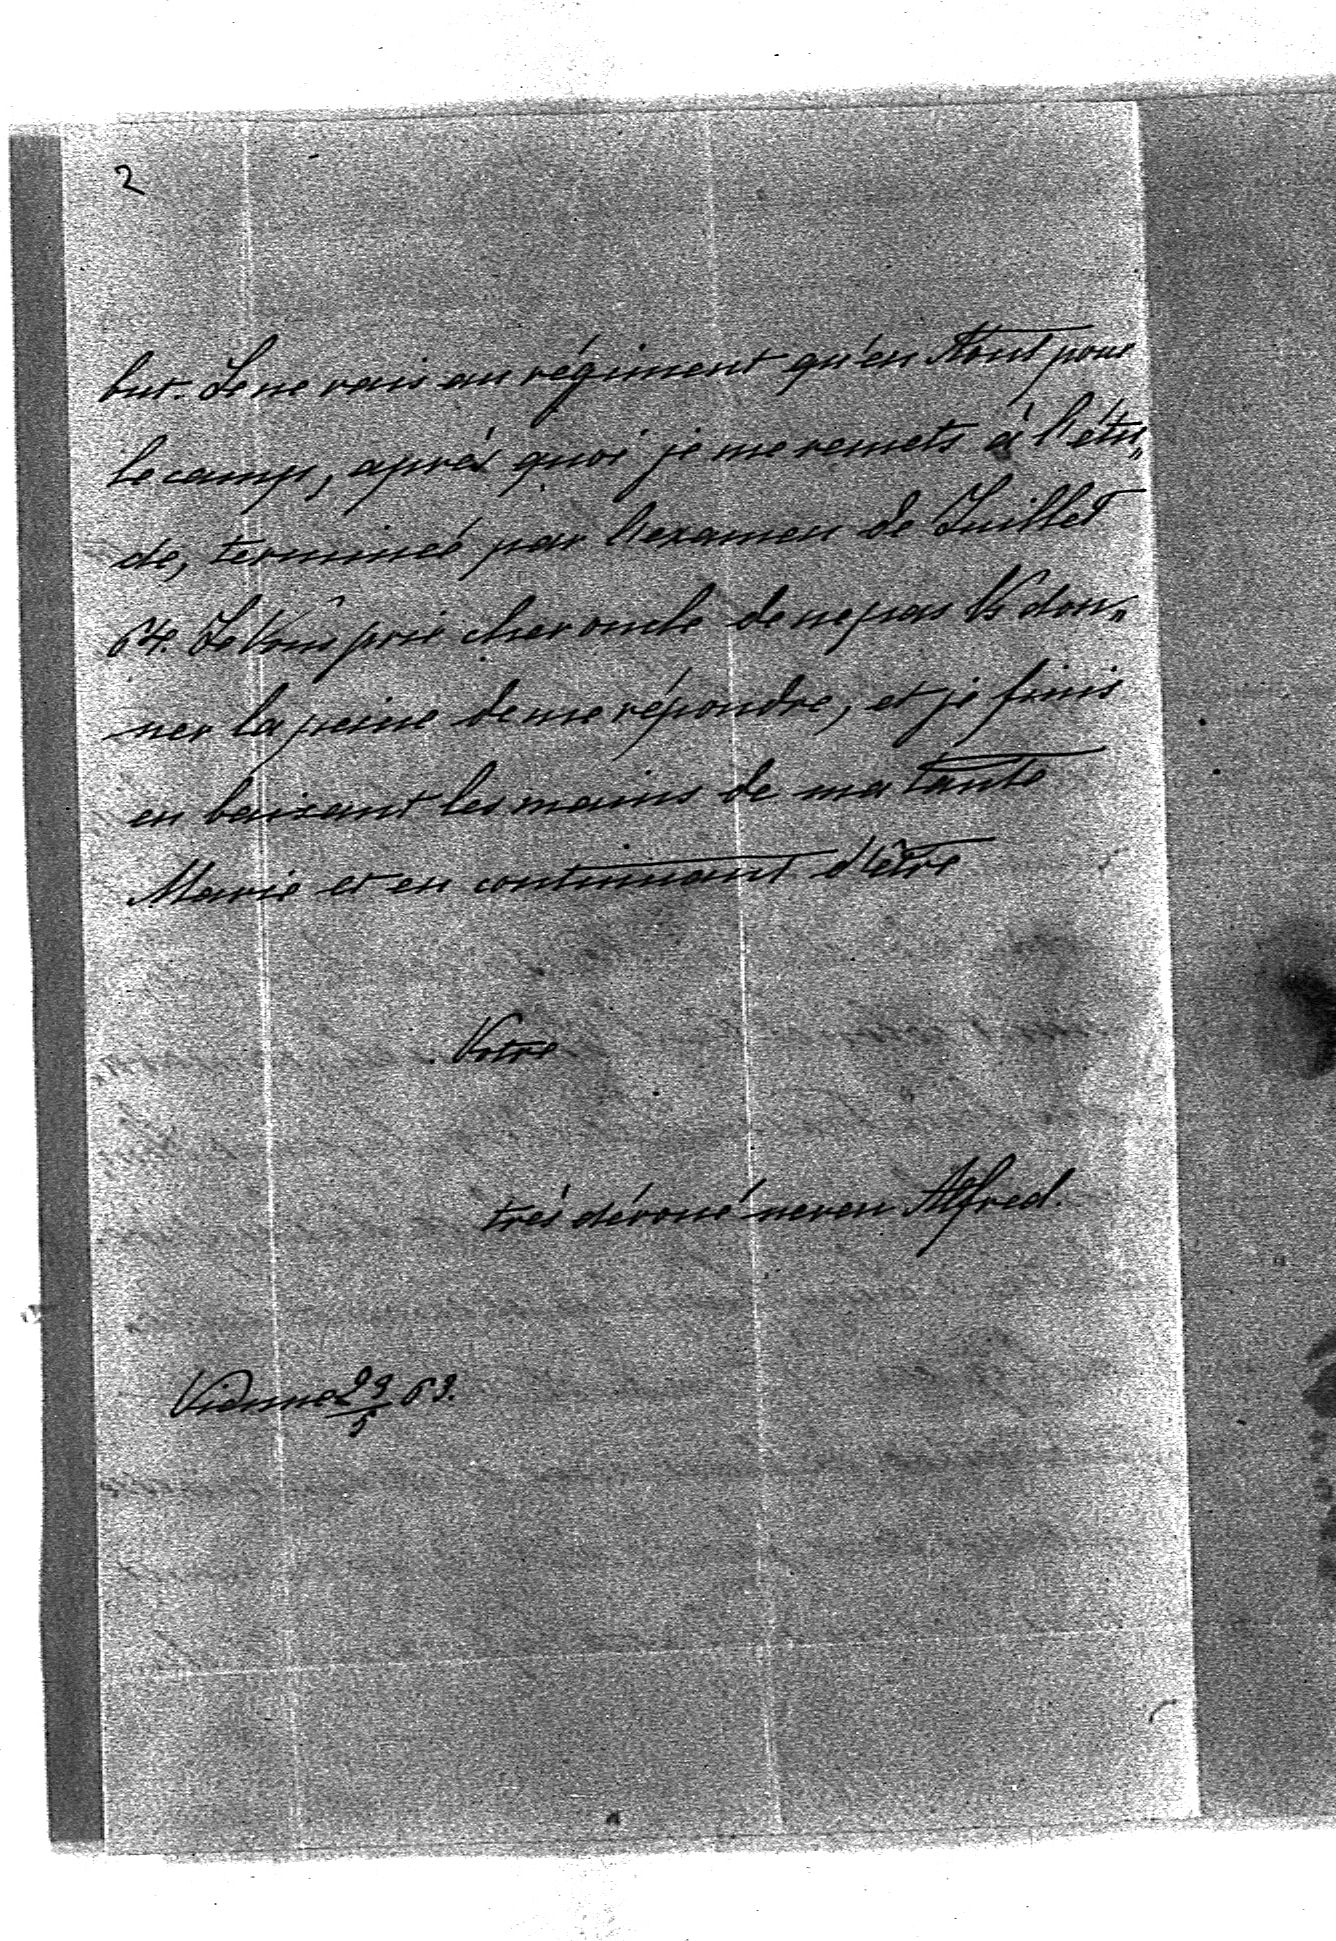 2
but. Je ne vais au régiment qu'en Août pour
le camp, après quoi je me remets à l'étu„
de, terminée par l'examen de Juillet
64. Je Vous prie cher oncle de ne pas Vs don„
ner la peine de me répondre, et je finis
en baizant les mains de ma tante
Marie et en continuant d'être
Votre
très dévoué neveu Alfred.
Vienne 29/5 63.